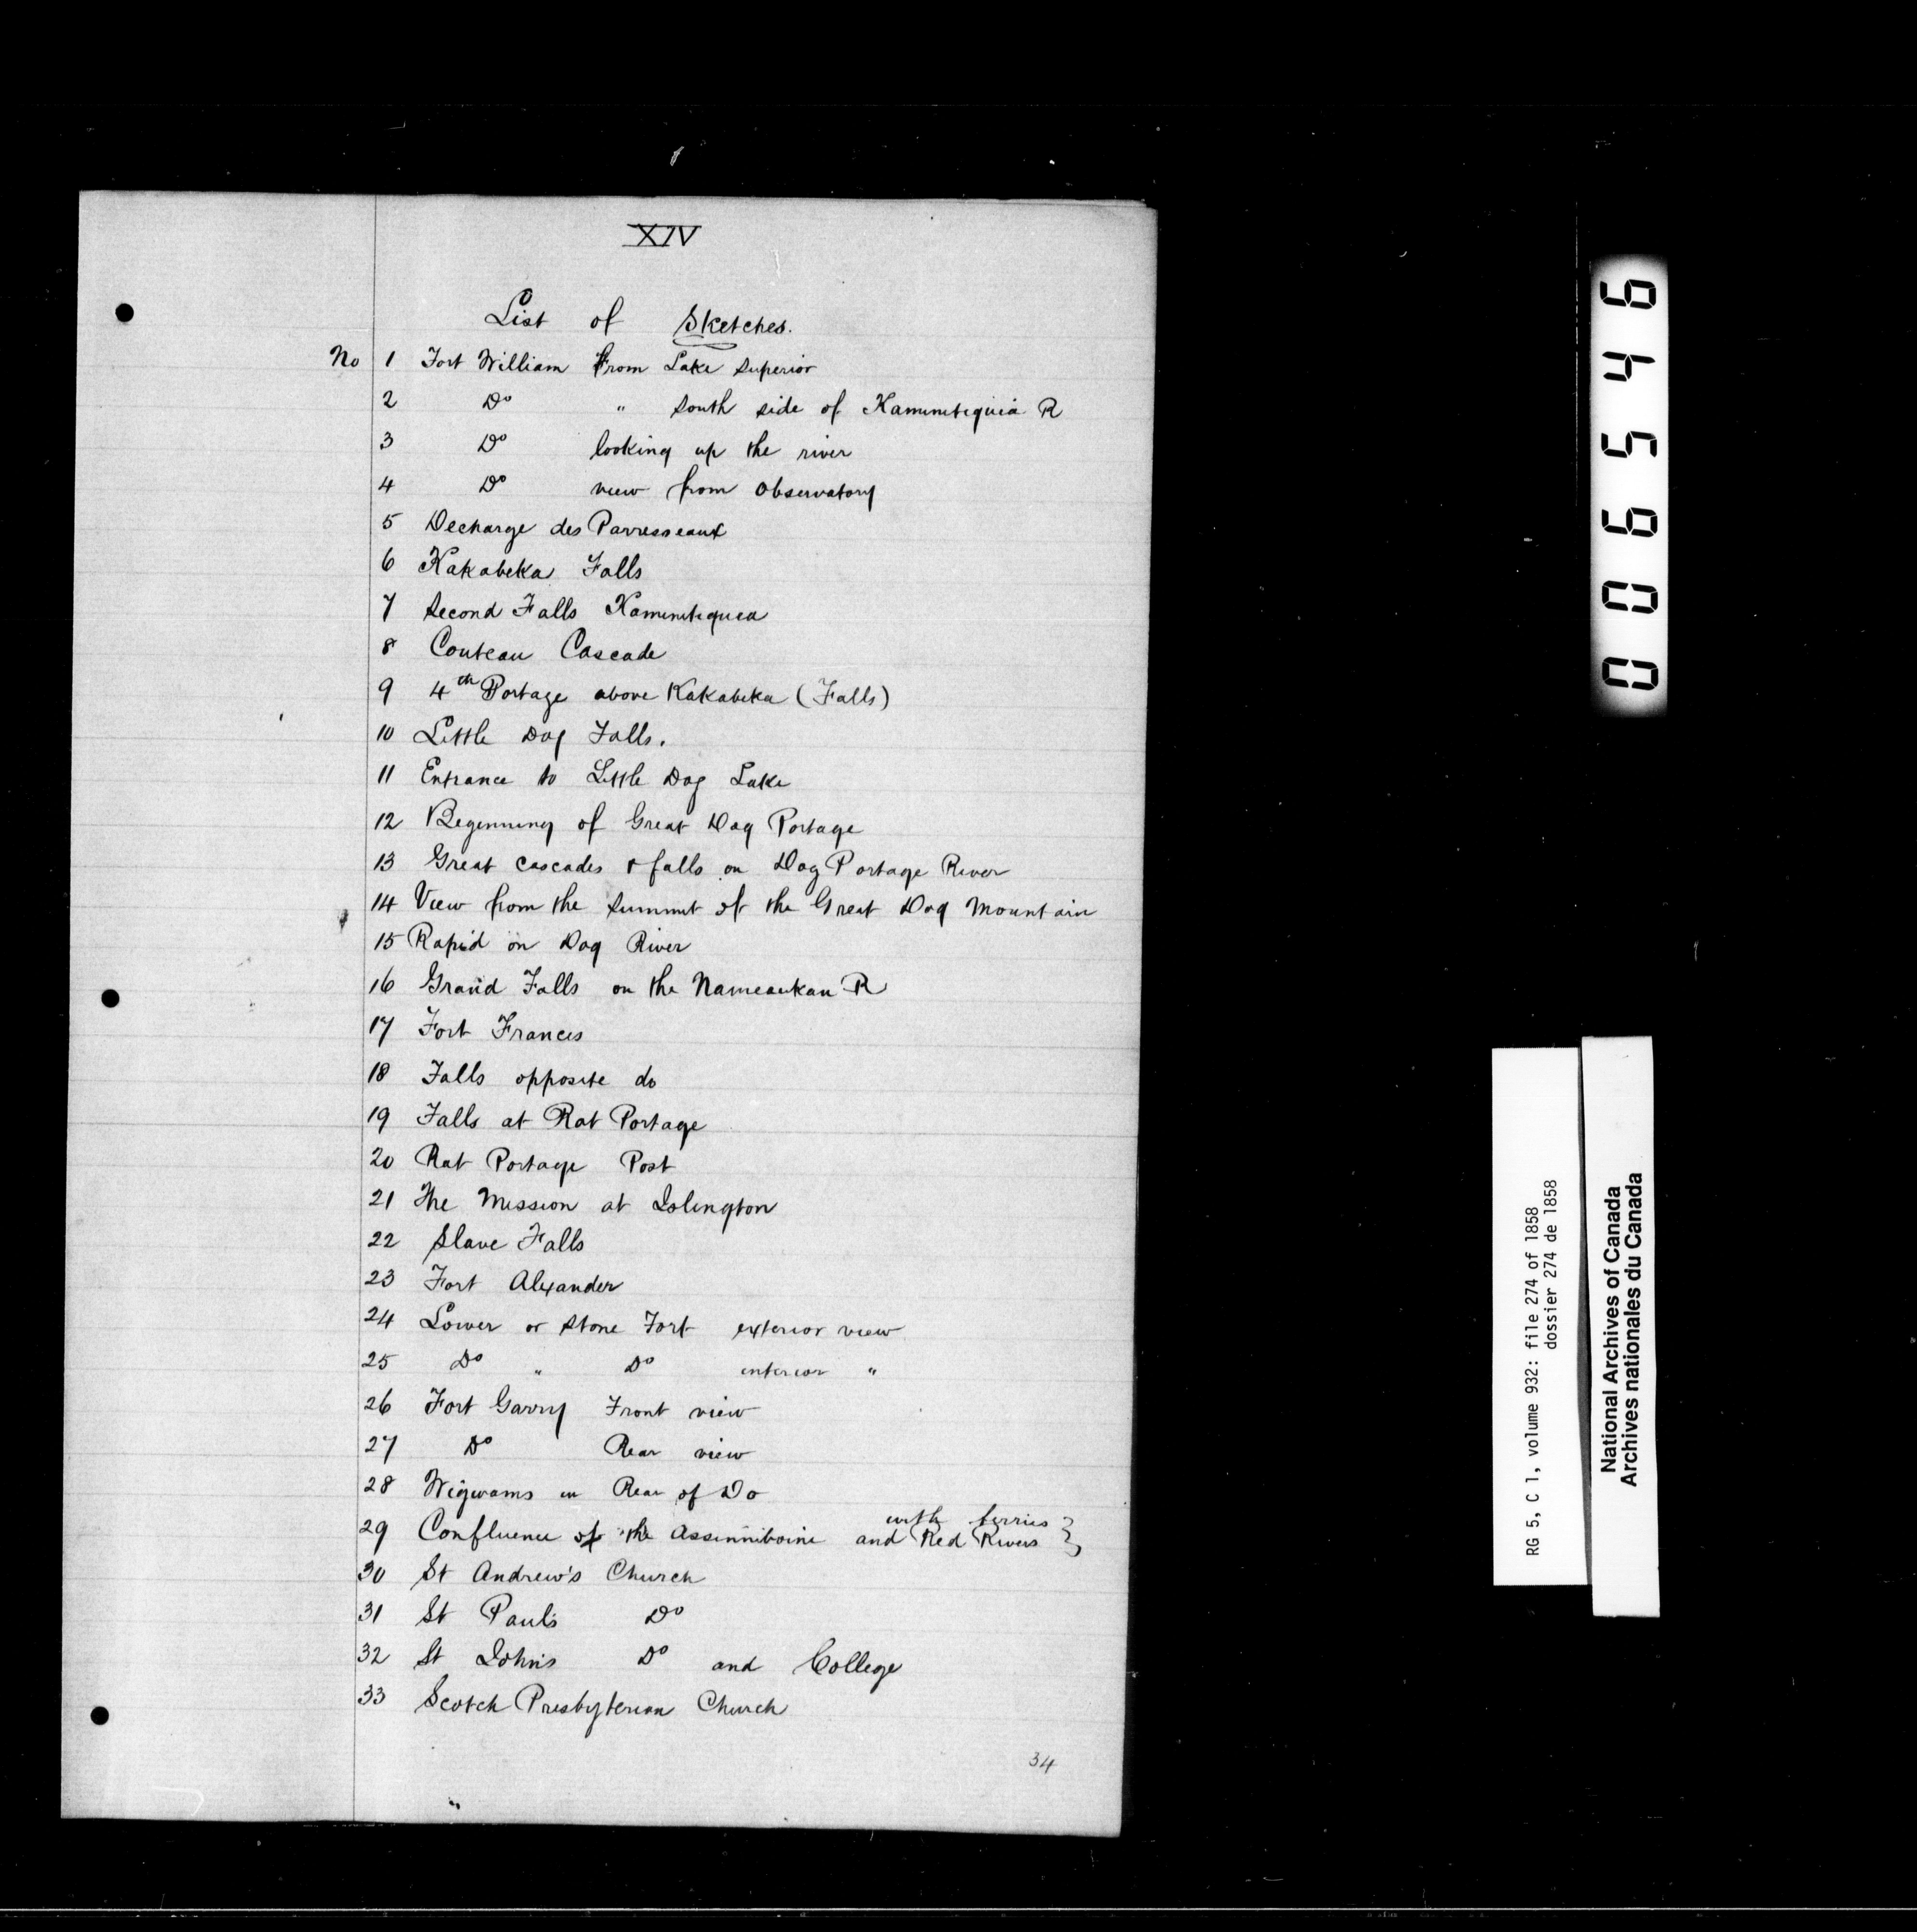 XIV
List of Sketches.
No 1 Fort William From Lake Superior
2 Do " South side of Kaministiquia R
3 Do looking up the river
4 Do view from Observatory
5 Decharge des Parresseaux
6 Kakabeka Falls
7 Second Falls Kaministiquea
8 Couteau Cascade
9 4th Portage above Kakabeka (Falls)
10 Little Dog Falls.
11 Entrance to Little Dog Lake
12 Beginning of Great Dog Portage
13 Great Cascades & falls on Dog Portage River
14 View from the Summit of the Great Dog Mountain
15 Rapid on Dog River
16 Grand Falls on the Nameaukan R
17 Fort Frances
18 Falls opposite do
19 Falls at Rat Portage
20 Rat Portage Post
21 The Mission at Islington
22 Slave Falls
23 Fort Alexander
24 Lower or Stone Fort exterior view
25 Do " Do interior "
26 Fort Garry Front view
27 Do Rear view
28 Wigwams in Rear of Do
with ferries
29 Confluence of the Assinniboine and Red Rivers }
30 St Andrew's Church
31 St Paul's Do
32 St John's Do and College
33 Scotch Presbyterian Church
34
006546
RG 5, C 1, volume 932: file 274 of 1858
dossier 274 de 1858
National Archives of Canada
Archives nationales du Canada